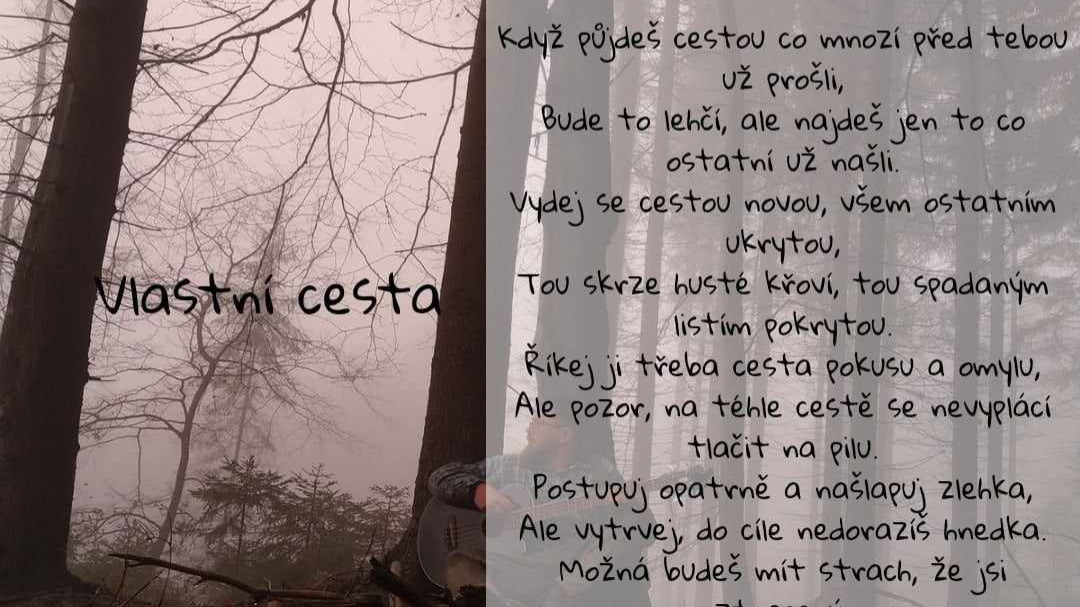 Vlastní cesta
Když půjdeš cestou co mnozí před tebou
už prošli,
Bude to lehčí, ale najdeš jen to co
ostatní už našli.
Vydej se cestou novou, všem ostatním
ukrytou,
Tou skrze husté křoví, tou spadaným
listím pokrytou.
Říkej ji třeba cesta pokusu a omylu,
Ale pozor, na téhle cestě se nevyplácí
tlačit na pilu.
Postupuj opatrně a našlapuj zlehka,
Ale vytrvej, do cíle nedorazíš hnedka.
Možná budeš mít strach, že jsi